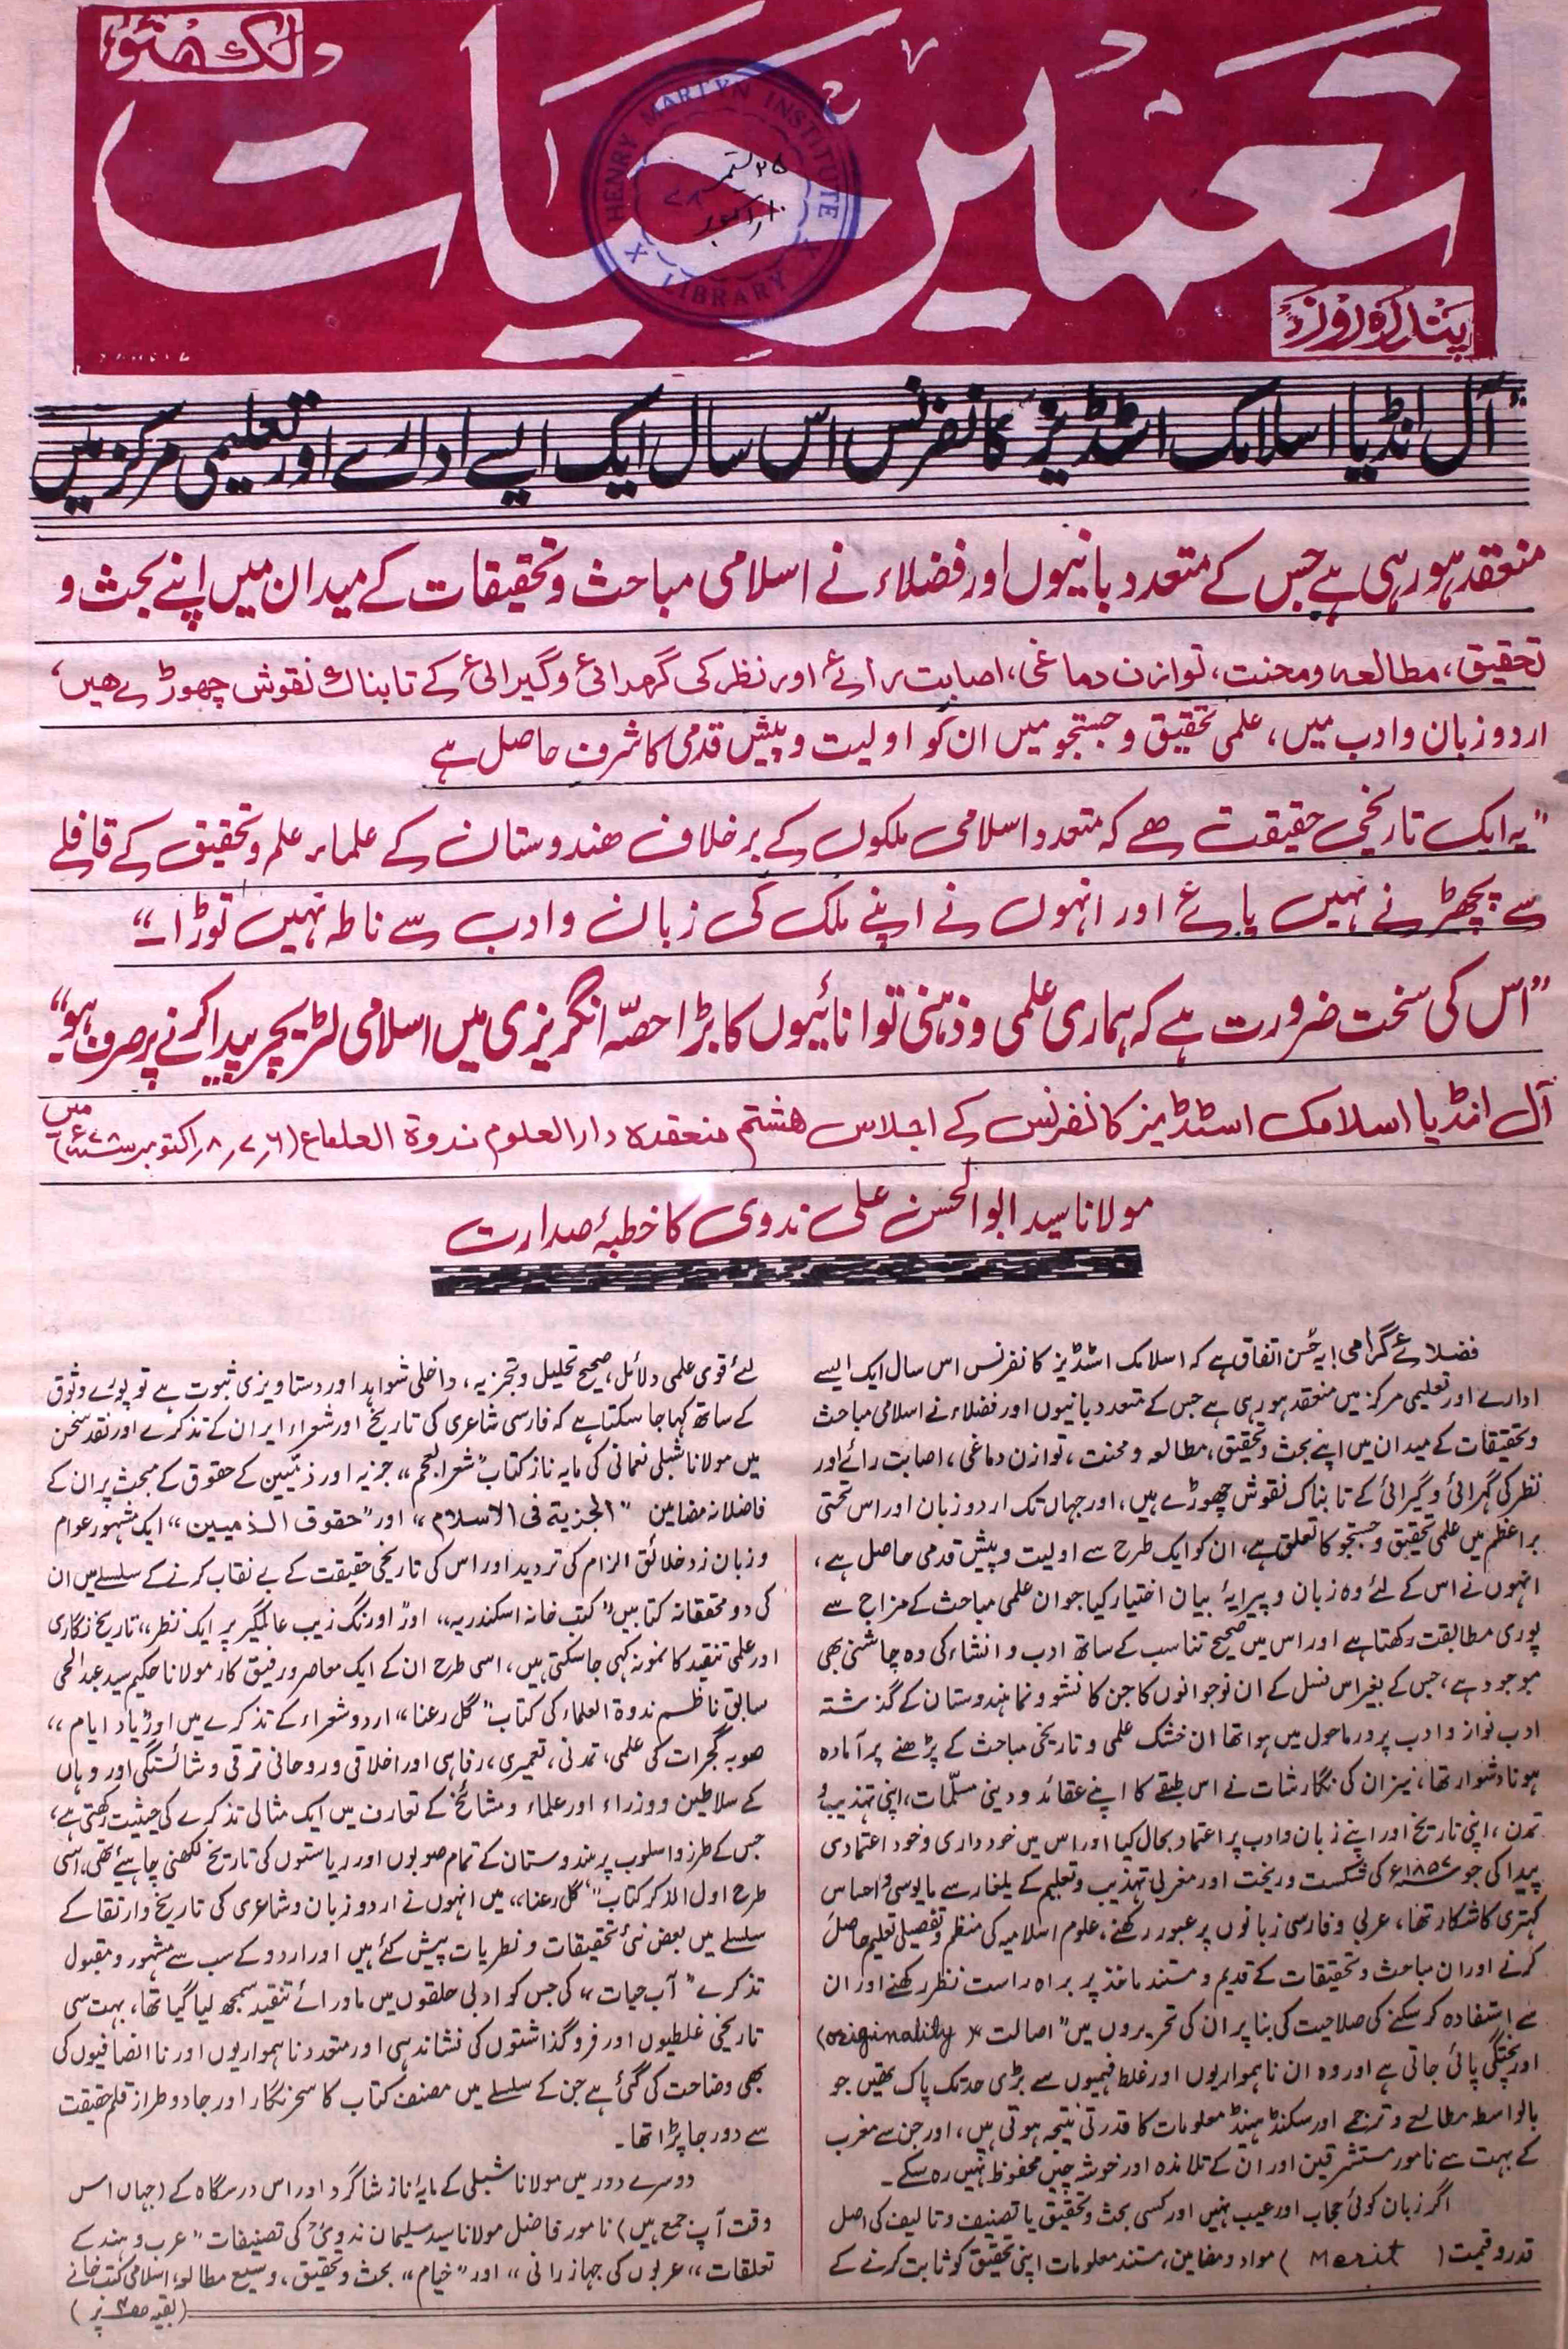 لکھنؤ
تعمیر حیات
پندرہ روزہ
HENRY MARTYN INSTITUTE
LIBRARY
۲۵ ستمبر
۱۰ اکتوبر
"آل انڈیا اسلامک اسٹڈیز" کانفرنس اس سال ایک ایسے ادارے اور تعلیمی مرکز میں
منعقد ہو رہی ہے جس کے متعدد بانیوں اور فضلاء نے اسلامی مباحث و تحقیقات کے میدان میں اپنے بحث و
تحقیق، مطالعہ و محنت، توازن دماغی، اصابت رائے اور نظر کی گہرائی و گیرائی کے تابناک نقوش چھوڑے ہیں،
اردو زبان و ادب میں، علمی تحقیق و جستجو میں ان کو اولیت و پیش قدمی کا شرف حاصل ہے
"یہ ایک تاریخی حقیقت ہے کہ متعدد اسلامی ملکوں کے برخلاف ہندوستان کے علماء علم و تحقیق کے قافلے
سے پچھڑنے نہیں پائے اور انہوں نے اپنے ملک کی زبان و ادب سے ناطہ نہیں توڑا۔"
"اس کی سخت ضرورت ہے کہ ہماری علمی و ذہنی توانائیوں کا بڑا حصّہ انگریزی میں اسلامی لٹریچر پیدا کرنے پر صرف ہو۔"
آل انڈیا اسلامک اسٹڈیز کانفرنس کے اجلاس ہشتم منعقدہ دارالعلوم ندوۃ العلماء (۶، ۷، ۸ اکتوبر) میں
مولانا سید ابوالحسن علی ندوی کا خطبۂ صدارت
فضلائے گرامی! یہ حُسن اتفاق ہے کہ اسلامک اسٹڈیز کانفرنس اس سال ایک ایسے
ادارے اور تعلیمی مرکز میں منعقد ہو رہی ہے جس کے متعدد بانیوں اور فضلاء نے اسلامی مباحث
و تحقیقات کے میدان میں اپنے بحث و تحقیق، مطالعہ و محنت، توازن دماغی، اصابت رائے اور
نظر کی گہرائی و گیرائی کے تابناک نقوش چھوڑے ہیں، اور جہاں تک اردو زبان اور اس تحتی
براعظم میں علمی تحقیق و جستجو کا تعلق ہے، ان کو ایک طرح سے اولیت و پیش قدمی حاصل ہے،
انہوں نے اس کے لئے وہ زبان و پیرایۂ بیان اختیار کیا جو ان علمی مباحث کے مزاج سے
پوری مطابقت رکھتا ہے اور اس میں صحیح تناسب کے ساتھ ادب و انشاء کی وہ چاشنی بھی
موجود ہے، جس کے بغیر اس نسل کے ان نوجوانوں کا جن کا نشو و نما ہندوستان کے گذشتہ
ادب نواز و ادب پرور ماحول میں ہوا تھا ان خشک علمی و تاریخی مباحث کے پڑھنے پر آمادہ
ہونا دشوار تھا، نیز ان کی نگارشات نے اس طبقے کا اپنے عقائد و دینی مسلّمات، اپنی تہذیب و
تمدن، اپنی تاریخ اور اپنے زبان و ادب پر اعتماد بحال کیا اور اس میں خودداری و خود اعتمادی
پیدا کی جو ۱۸۵۷ء کی شکست و ریخت اور مغربی تہذیب و تعلیم کے یلغار سے مایوسی و احساس
کہتری کا شکار تھا، عربی و فارسی زبانوں پر عبور رکھنے، علوم اسلامیہ کی منظم و تفصیلی تعلیم حاصل
کرنے اور ان مباحث و تحقیقات کے قدیم و مستند ماخذ پر براہ راست نظر رکھنے اور ان
سے استفادہ کر سکنے کی صلاحیت کی بنا پر ان کی تحریروں میں "اصالت" (originality)
اور پختگی پائی جاتی ہے اور وہ ان ناہمواریوں اور غلط فہمیوں سے بڑی حد تک پاک تھیں جو
بالواسطہ مطالعے و ترجمے اور سکنڈ ہینڈ معلومات کا قدرتی نتیجہ ہوتی ہیں، اور جن سے مغرب
کے بہت سے نامور مستشرقین اور ان کے تلامذہ اور خوشہ چیں محفوظ نہیں رہ سکے۔
اگر زبان کوئی حجاب اور عیب نہیں اور کسی بحث و تحقیق یا تصنیف و تالیف کی اصل
قدر و قیمت (Merit) مواد و مضامین، مستند معلومات اپنی تحقیق کو ثابت کرنے کے
لئے قوی علمی دلائل، صحیح تحلیل و تجزیہ، داخلی شواہد اور دستاویزی ثبوت ہے تو پورے وثوق
کے ساتھ کہا جا سکتا ہے کہ فارسی شاعری کی تاریخ اور شعراء ایران کے تذکرے اور نقد سخن
میں مولانا شبلی نعمانی کی مایہ ناز کتاب "شعر العجم" جزیہ اور ذمیین کے حقوق کے مبحث پر ان کے
فاضلانہ مضامین "الجزیۃ فی الاسلام" اور "حقوق الذمیین" ایک مشہور عوام
و زبان زد خلائق الزام کی تردید اور اس کی تاریخی حقیقت کے بے نقاب کرنے کے سلسلے میں ان
کی دو محققانہ کتابیں "کتب خانہ اسکندریہ" اور "اورنگ زیب عالمگیر پر ایک نظر" تاریخ نگاری
اور علمی تنقید کا نمونہ کہی جا سکتی ہیں، اسی طرح ان کے ایک معاصر و رفیق کار مولانا حکیم سید عبدالحی
سابق ناظم ندوۃ العلماء کی کتاب "گل رعنا" اردو شعراء کے تذکرے میں اور "یاد ایام"
صوبہ گجرات کی علمی، تمدنی، تعمیری، رفاہی اور اخلاقی و روحانی ترقی و شائستگی اور وہاں
کے سلاطین و وزراء اور علماء و مشائخ کے تعارف میں ایک مثالی تذکرے کی حیثیت رکھتی ہے،
جس کے طرز و اسلوب پر ہندوستان کے تمام صوبوں اور ریاستوں کی تاریخ لکھنی چاہیئے تھی، اسی
طرح اول الذکر کتاب "گل رعنا" میں انہوں نے اردو زبان و شاعری کی تاریخ و ارتقا کے
سلسلے میں بعض نئی تحقیقات و نظریات پیش کئے ہیں اور اردو کے سب سے مشہور و مقبول
تذکرے "آب حیات" کی جس کو ادبی حلقوں میں ماورائے تنقید سمجھ لیا گیا تھا، بہت سی
تاریخی غلطیوں اور فروگذاشتوں کی نشاندہی اور متعدد ناہمواریوں اور ناانصافیوں کی
بھی وضاحت کی گئی ہے جن کے سلسلے میں مصنف کتاب کا سحر نگار اور جادو طراز قلم حقیقت
سے دور جا پڑا تھا۔
دوسرے دور میں مولانا شبلی کے مایۂ ناز شاگرد اور اس درسگاہ کے (جہاں اس
وقت آپ جمع ہیں) نامور فاضل مولانا سید سلیمان ندویؒ کی تصنیفات "عرب و ہند کے
تعلقات" "عربوں کی جہازرانی" اور "خیام" بحث و تحقیق، وسیع مطالعہ، اسلامی کتب خانے
(بقیہ ص۳ پر)